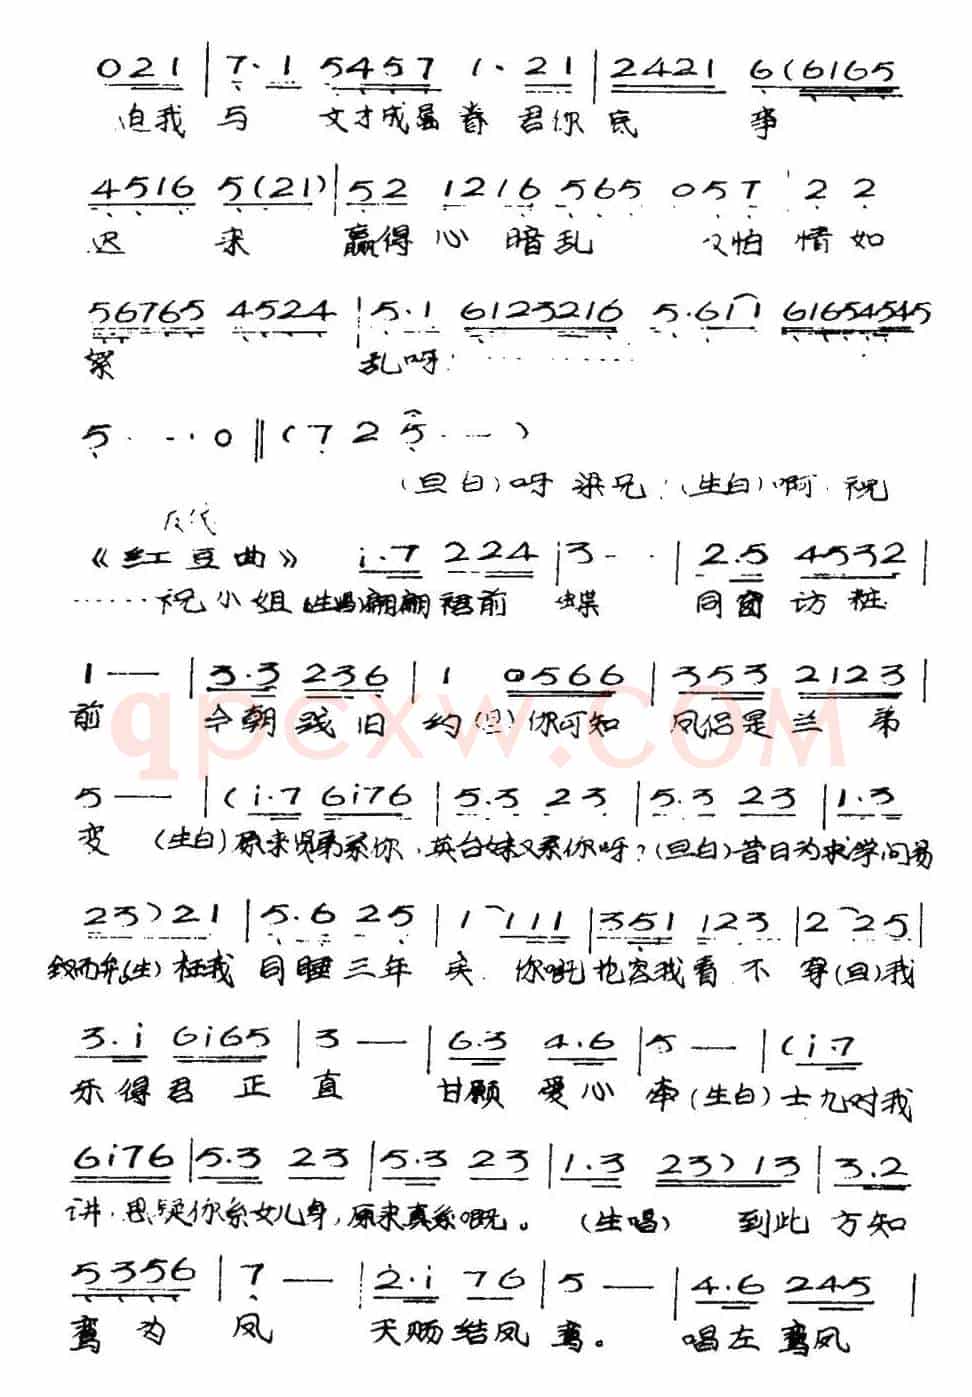 021 | 7·1 5457 1·21 | 2421 6(6165
迫我 与 文才成眷 君你 事
4516 5(21) | 52 1216 565 057 | 2 2
迟 来 赢得 心 暗乱 又怕 情 如
56765 4524 | 5·1 6123216 5·6i1 61654545
絮 乱呀·········
5 · · · 0 ‖ ( 7 2 5 · — )
(旦白)呀 梁兄 (生白)啊 祝
反线
《红豆曲》 i·7 224 | 3 · · | 2·5 4532 |
······祝小姐(生唱)翩翩裙前 蝶 同窗 访 前
1 — — | 3·3 236 | 1 0566 | 353 2123 |
前 今朝 践旧 约(旦)你可知 凤侣是兰 弟
qpcxw.COM
5 — — | (i·7 6i76 | 5·3 23 | 5·3 23 | 1·3
变 (生白)原来贤弟系你,英台妹又系你呀?(旦白)昔日为求学问易
23) 21 | 5·6 25 | 1 111 | 351 123 | 2 25 |
钗而弁(生)枉我 同睡三年 矣 你嘅 容我看 不 穿(旦)我
3·i 6i65 | 3 — | 6·3 4·6 | 5 — | (i·7
乐得君 正 直 甘愿 爱心 牵(生白)士九对我
6i76 | 5·3 23 | 5·3 23 | 1·3 23) 13 | 3·2
讲,思疑你系女儿身,原来真系嘅。(生唱) 到此 方知
5356 | 7 — | 2·i 76 | 5 — | 4·6 245 |
鸾 为 凤 天赐结凤 鸾。 唱左 鸾凤